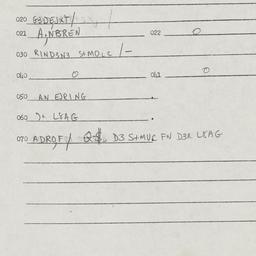 020 G3DEJXT/
021 A,NBREN 022 0
030 RIND3N3 S+MOLC /-
040 0 041 0
050 AN EJRING .
060 J+ L8AG .
070 ADROF/ D3 S+MUR FN D3R L8AG